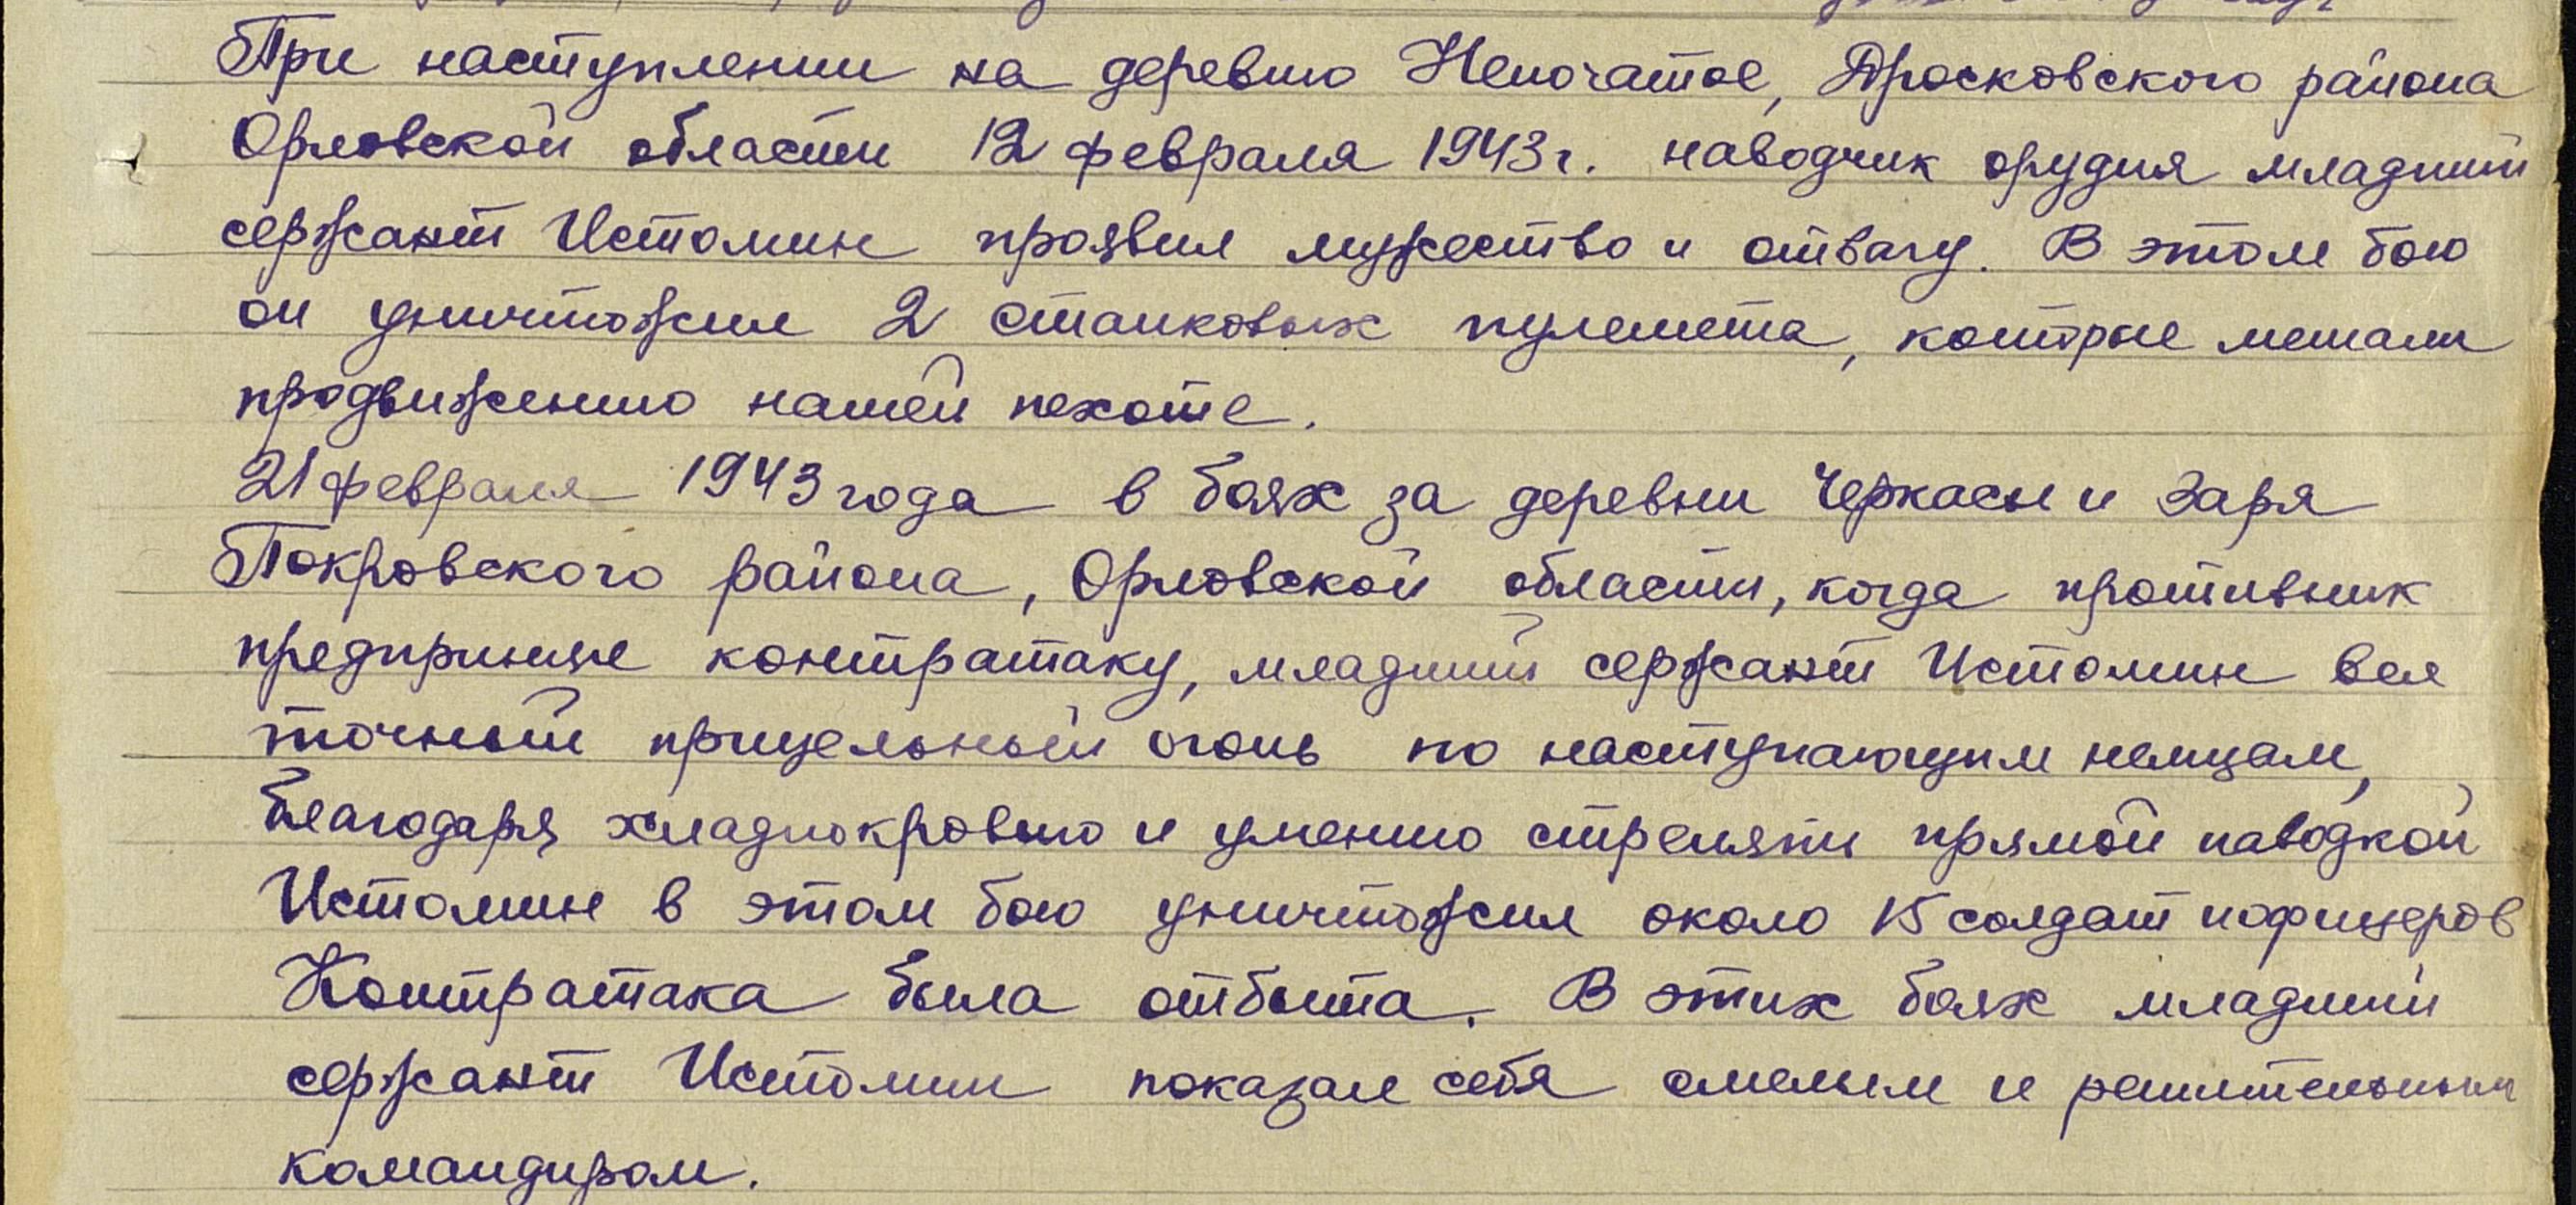 При наступлении на деревню Непочатое, Дросковского района
Орловской области 12 февраля 1943 г. наводчик орудия младший
сержант Истомин проявил мужество и отвагу. В этом бою
он уничтожил 2 станковых пулемета, которые мешали
продвижению нашей пехоте.
21 февраля 1943 года в боях за деревни Черкасы и Заря
Покровского района, Орловской области, когда противник
предпринял контратаку, младший сержант Истомин вел
точный прицельный огонь по наступающим немцам,
благодаря хладнокровию и умению стрелять прямой наводкой
Истомин в этом бою уничтожил около 15 солдат и офицеров
Контратака была отбита. В этих боях младший
сержант Истомин показал себя смелым и решительным
командиром.